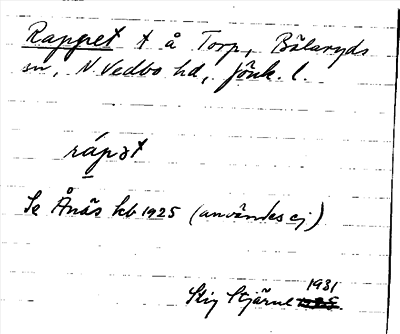 Rappet t å Torp, Bälaryds
sn, N. Vedbo hd, Jönk. l.
rápət
Se Ånäs kb 1925 (användes ej)
Stig Stjärne 1931